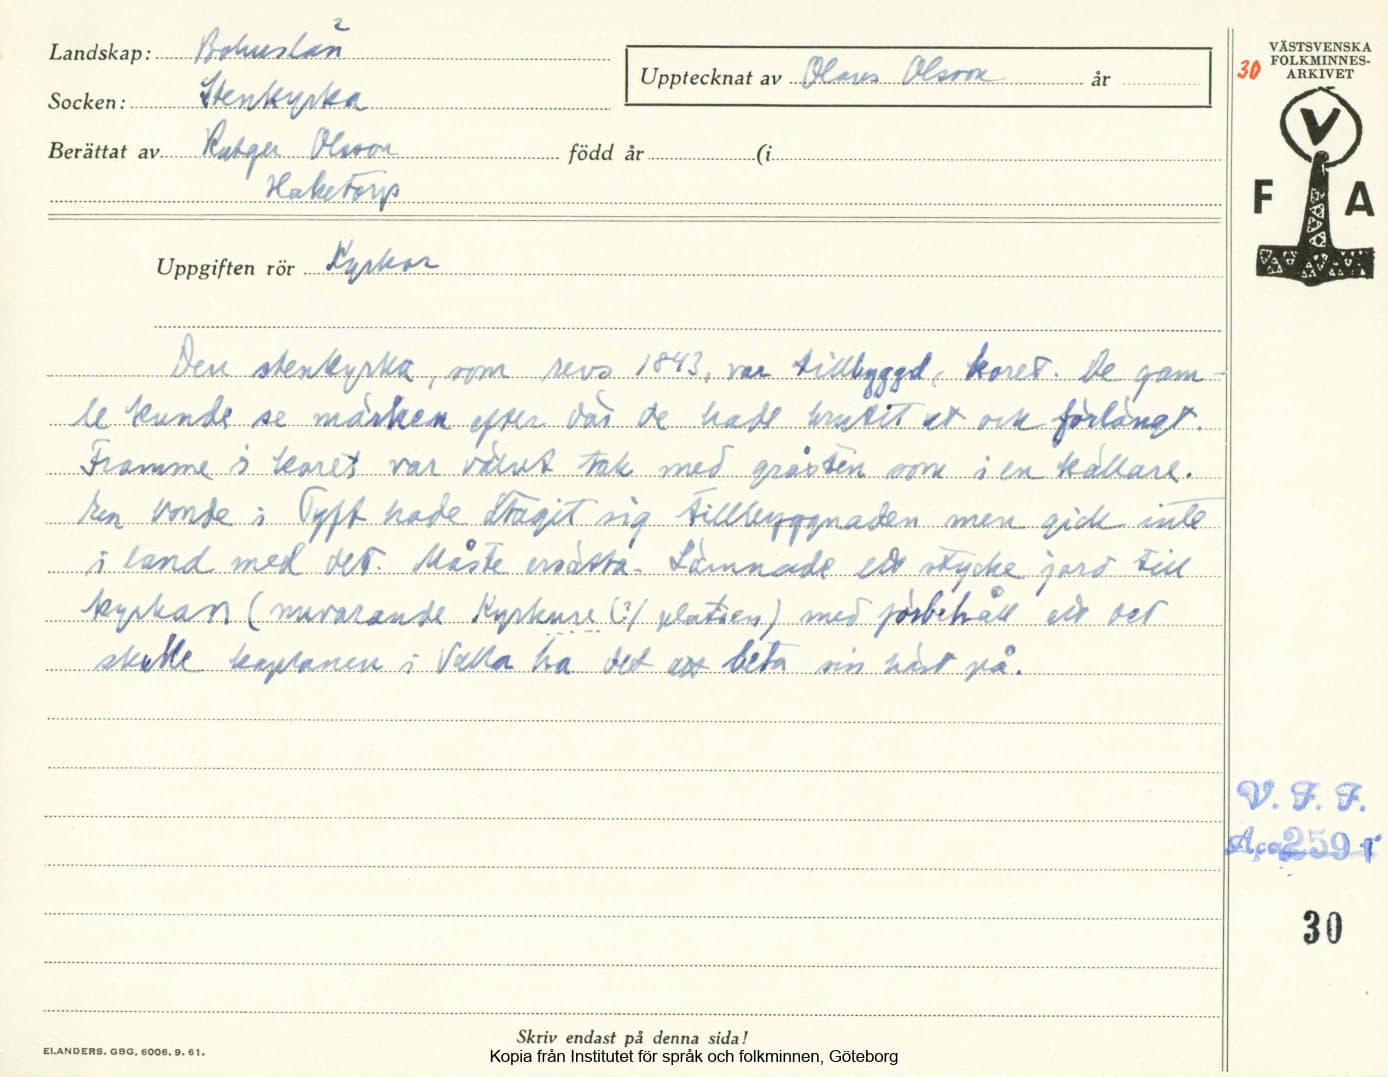 Landskap: Bohuslän
Socken: Stenkyrka
Berättat av Rutger Olsson född år (i
Haketorp
Upptecknat av Olaus Olsson år
30
VÄSTSVENSKA
FOLKMINNES-
ARKIVET
V
F A
Uppgiften rör Kyrkor
Den stenkyrka, som revs 1843, var tillbyggd, koret. De gam-
le kunde se märken efter där de hade brutit ut och förlängt.
Framme i koret var välvt tak med gråsten som i en källare.
En bonde i Tyft hade åtagit sig tillbyggnaden men gick inte
i land med det. Måste ersätta. Lämnade ett stycke jord till
kyrkan (nuvarande (?) platsen) med förbehåll att det
skulle kaplanen i Valla ha det att beta sin häst på.
V. F. F.
259
30
Skriv endast på denna sida!
ELANDERS, GBG, 6006. 9. 61.
Kopia från Institutet för språk och folkminnen, Göteborg